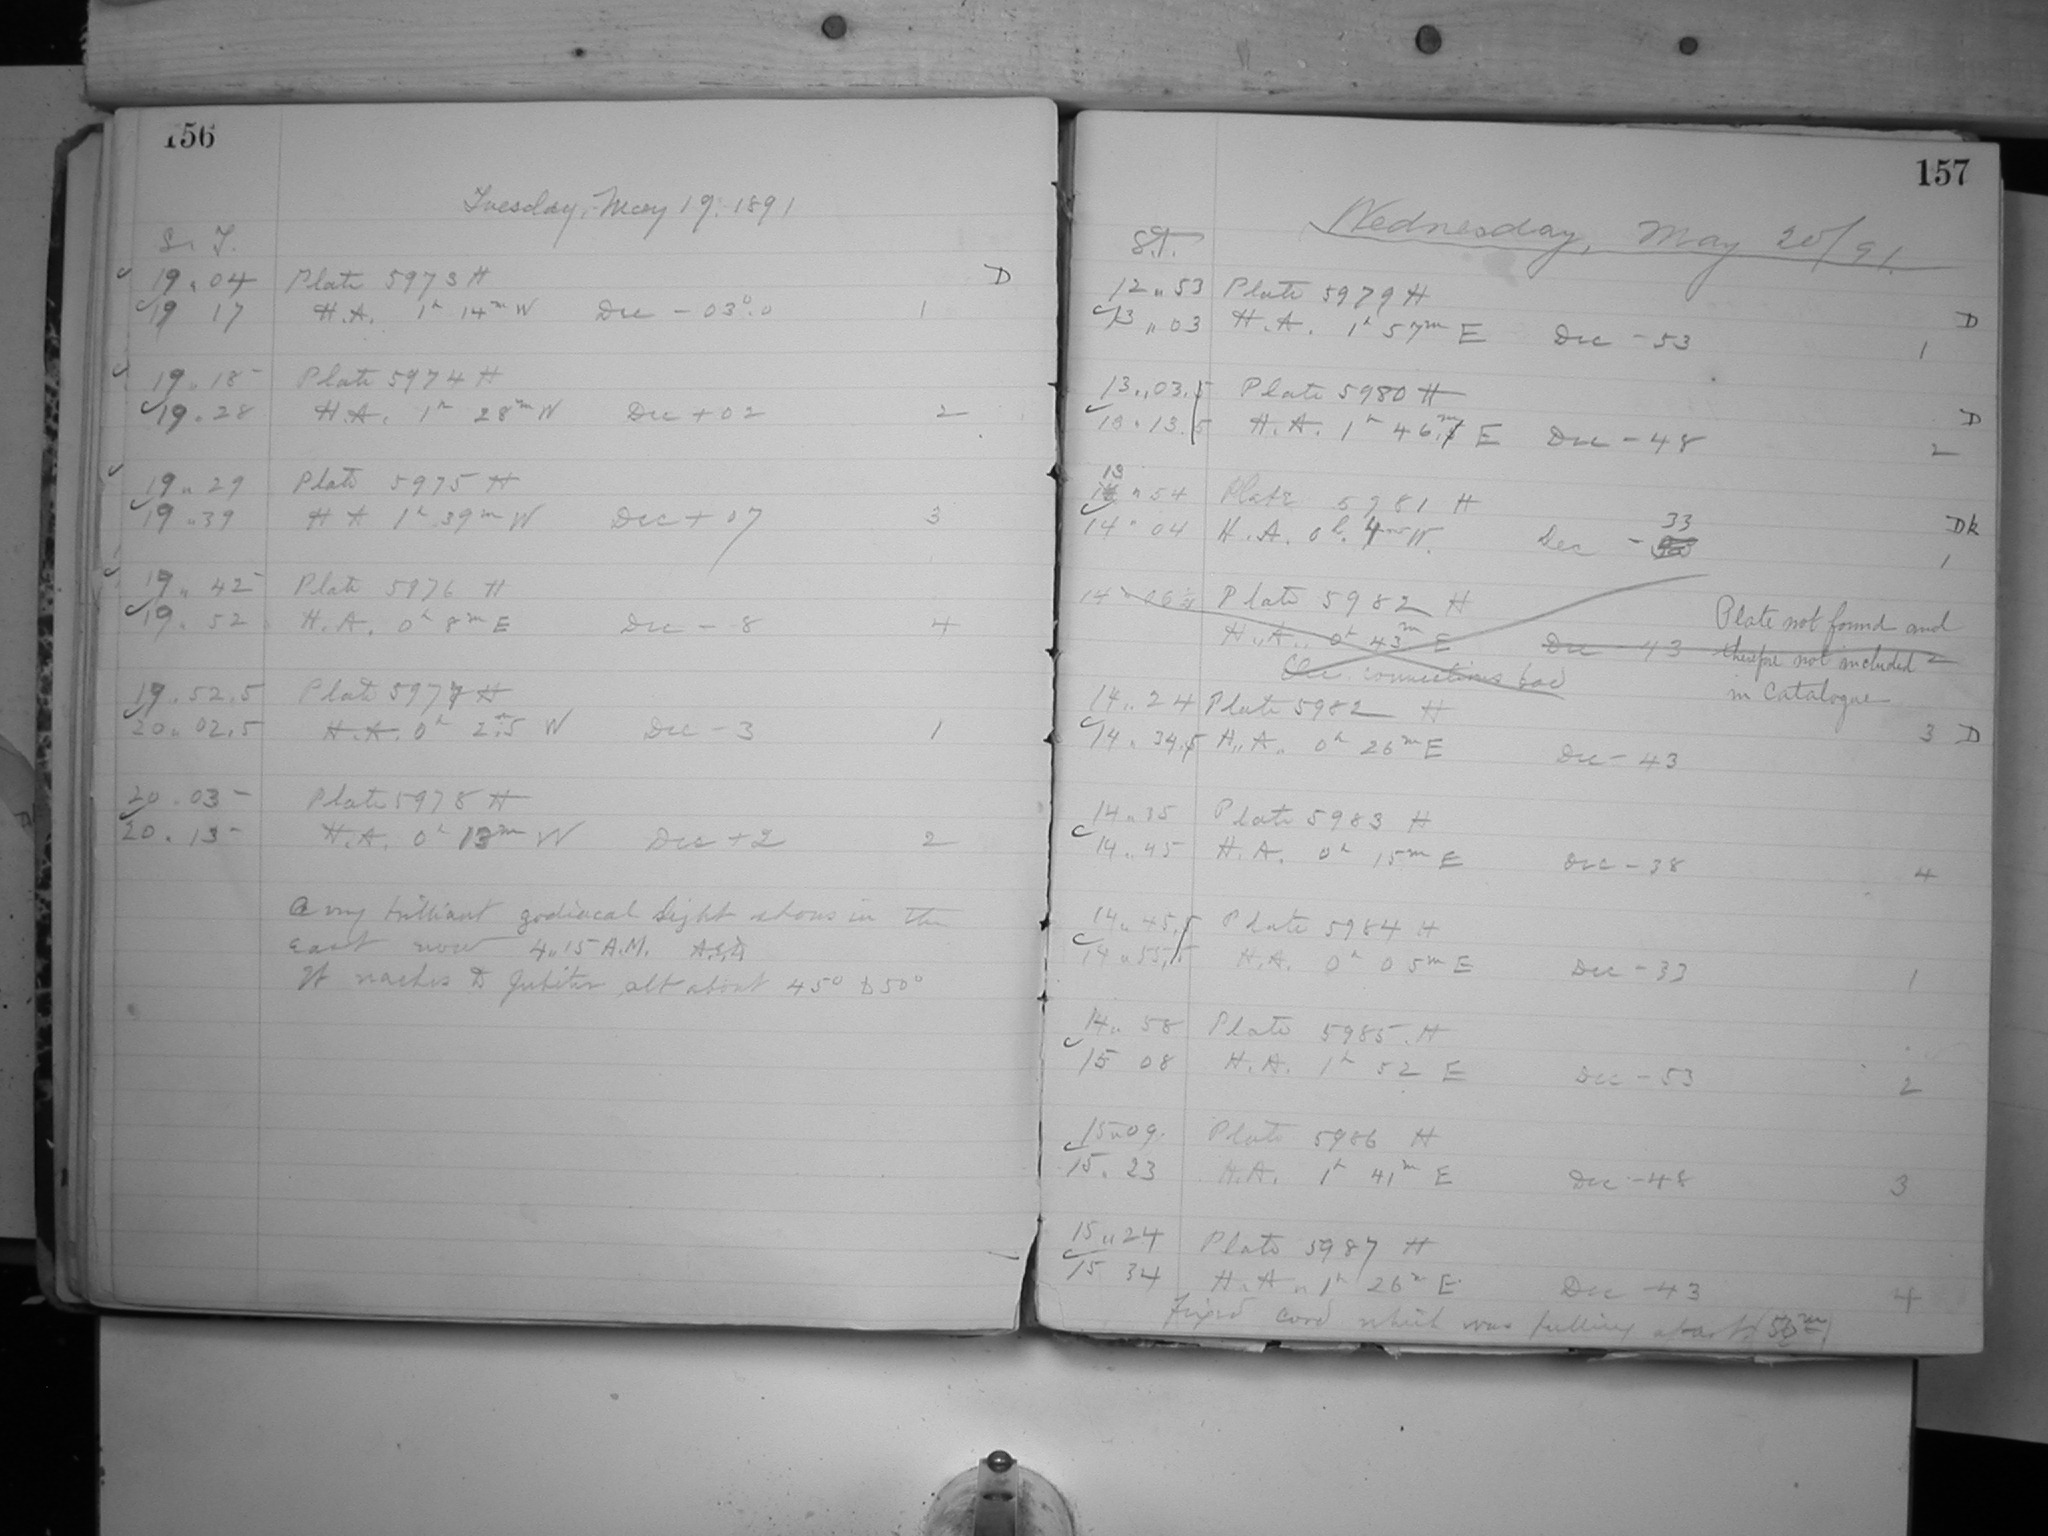 156
Tuesday, May 19. 1891
S. T.
19 . 04 Plate 5973 H D
19 17 H.A. 1h 14m W Dec - 03°.0 1
19 . 18 Plate 5974 H
19 . 28 H.A. 1h 28m W Dec + 02 2
19 .. 29 Plate 5975 H
19 .. 39 H A 1h 39m W Dec + 07 3
19 .. 42 Plate 5976 H
19 . 52 H.A. 0h 8m E Dec - 8 4
19 . 52.5 Plate 5977 H
20 .. 02.5 H.A. 0h 2m.5 W Dec - 3 1
20 . 03 Plate 5978 H
20 . 13 H.A. 0h 13m W Dec + 2 2
A very brilliant zodiacal light shows in the
east now 4.15 A.M.
It reaches to Jupiter, alt about 45° to 50°
157
Wednesday, May 20/91.
S.T.
12 .. 53 Plate 5979 H D
13 .. 03 H.A. 1h 57m E Dec - 53 1
13 .. 03.5 Plate 5980 H D
13 . 13.5 H.A. 1h 46m E Dec - 48 2
13 .. 54 Plate 5981 H Dk
14 .. 04 H.A. 0h. 4m W. Dec - 33 1
14 .. 06 1/4 Plate 5982 H
H..A.. 0h 43m E Dec - 43 2
Ele. connections bad
Plate not found and
therefore not included
in Catalogue
14 .. 24 Plate 5982 H 3 D
14 . 34.5 H..A.. 0h 26m E Dec - 43
14 .. 35 Plate 5983 H
14 .. 45 H.A. 0h 15m E Dec - 38 4
14 .. 45.5 Plate 5984 H
14 .. 55.5 H.A. 0h 05m E Dec - 33 1
14 .. 58 Plate 5985 . H
15 08 H.A. 1h 52 E Dec - 53 2
15 .. 09. Plate 5986 H
15 . 23 H.A. 1h 41m E Dec - 48 3
15 .. 24 Plate 5987 H
15 34 H.A .. 1h 26m E Dec - 43 4
Fixed cord which was pulling apart